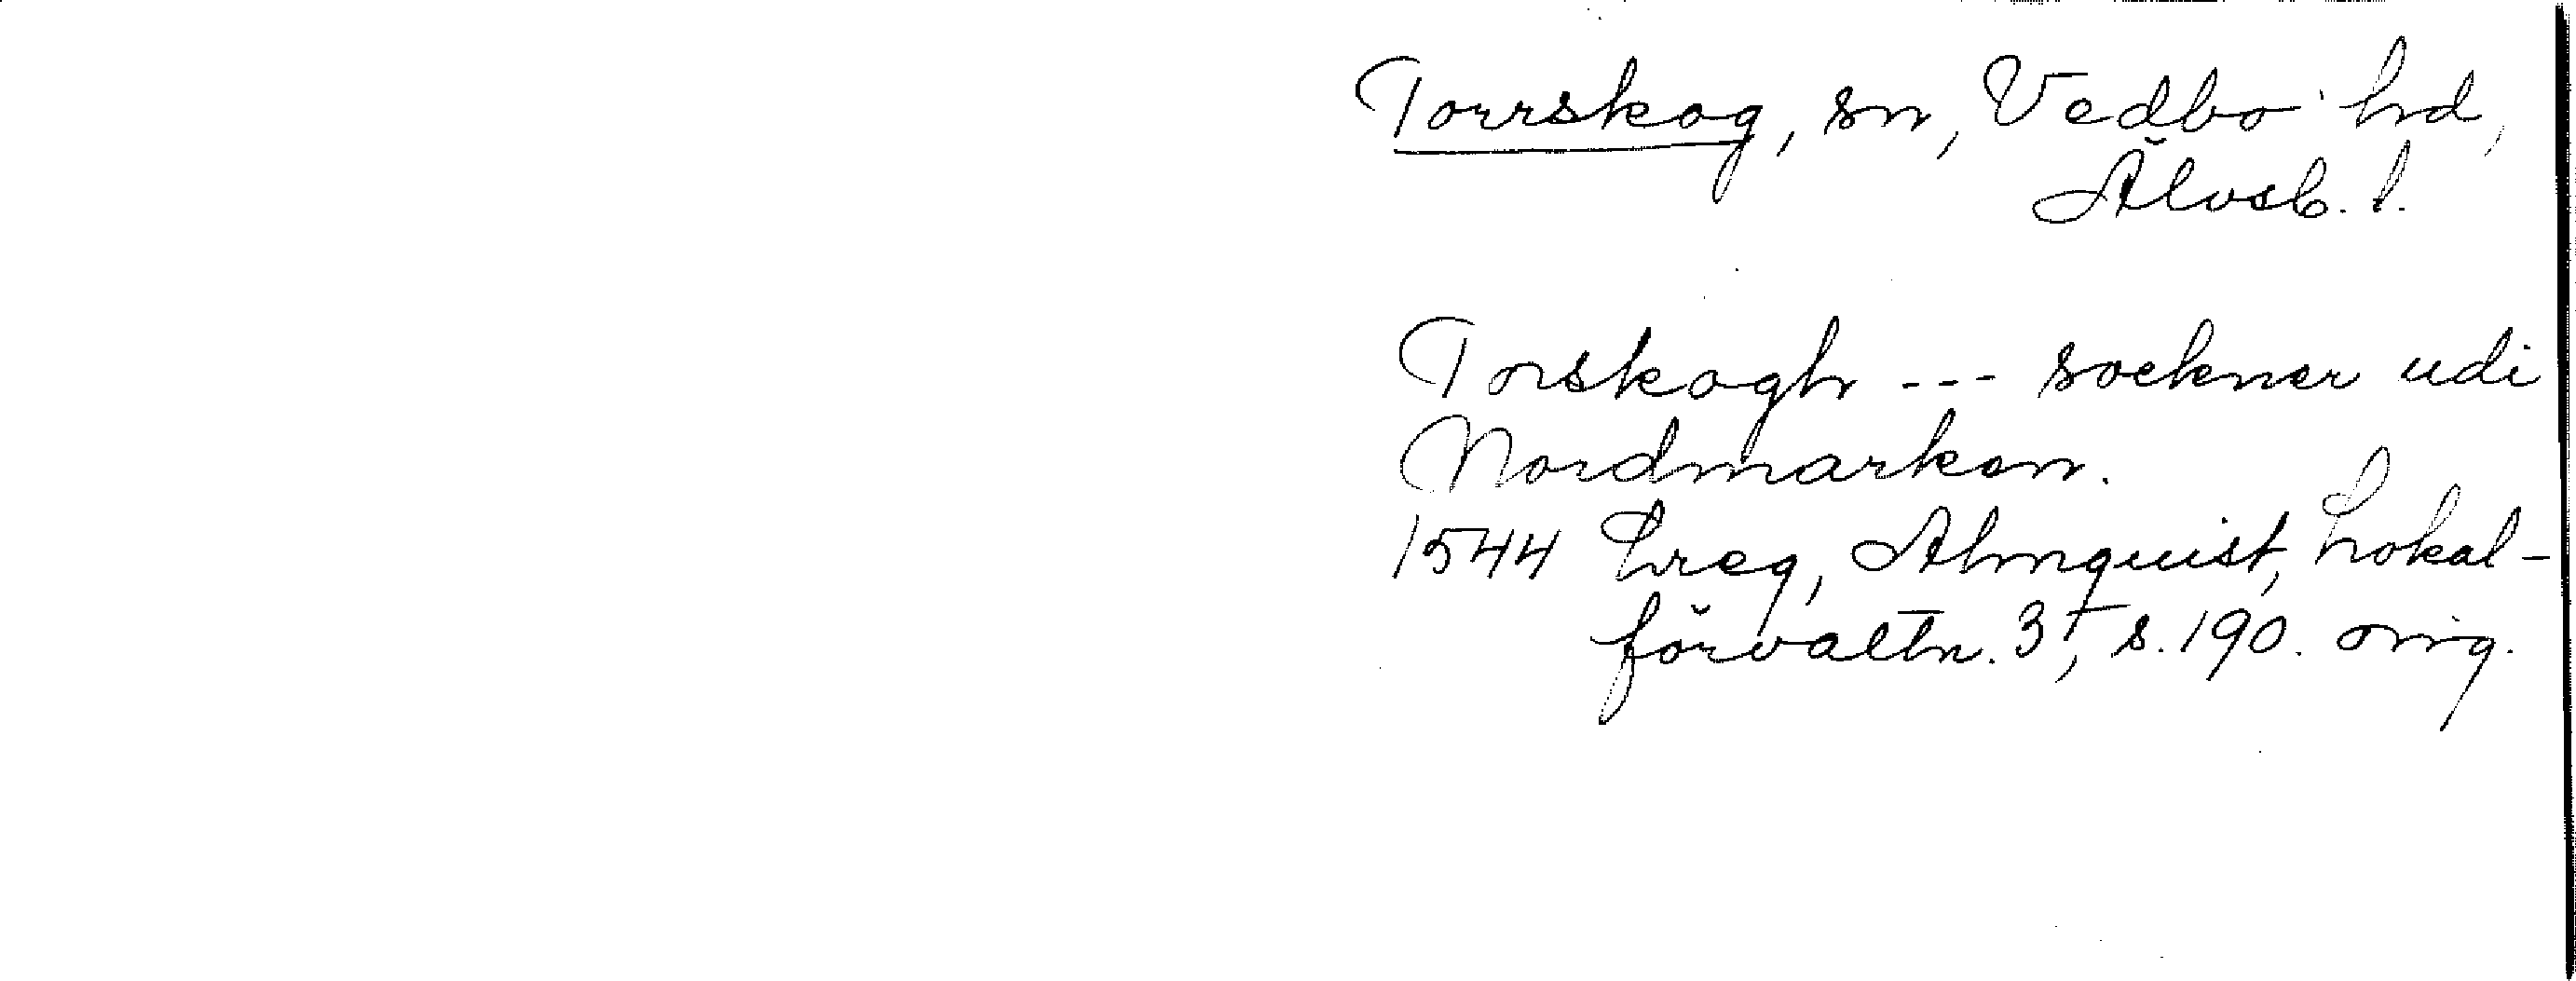 Torrskog, sn, Vedbo hd,
Älvsb. l.
Torskogh --- sockner udi
Nordmarken.
1544 Lreg, Almquist, Lokal-
förvaltn. 3, s. 190. orig.